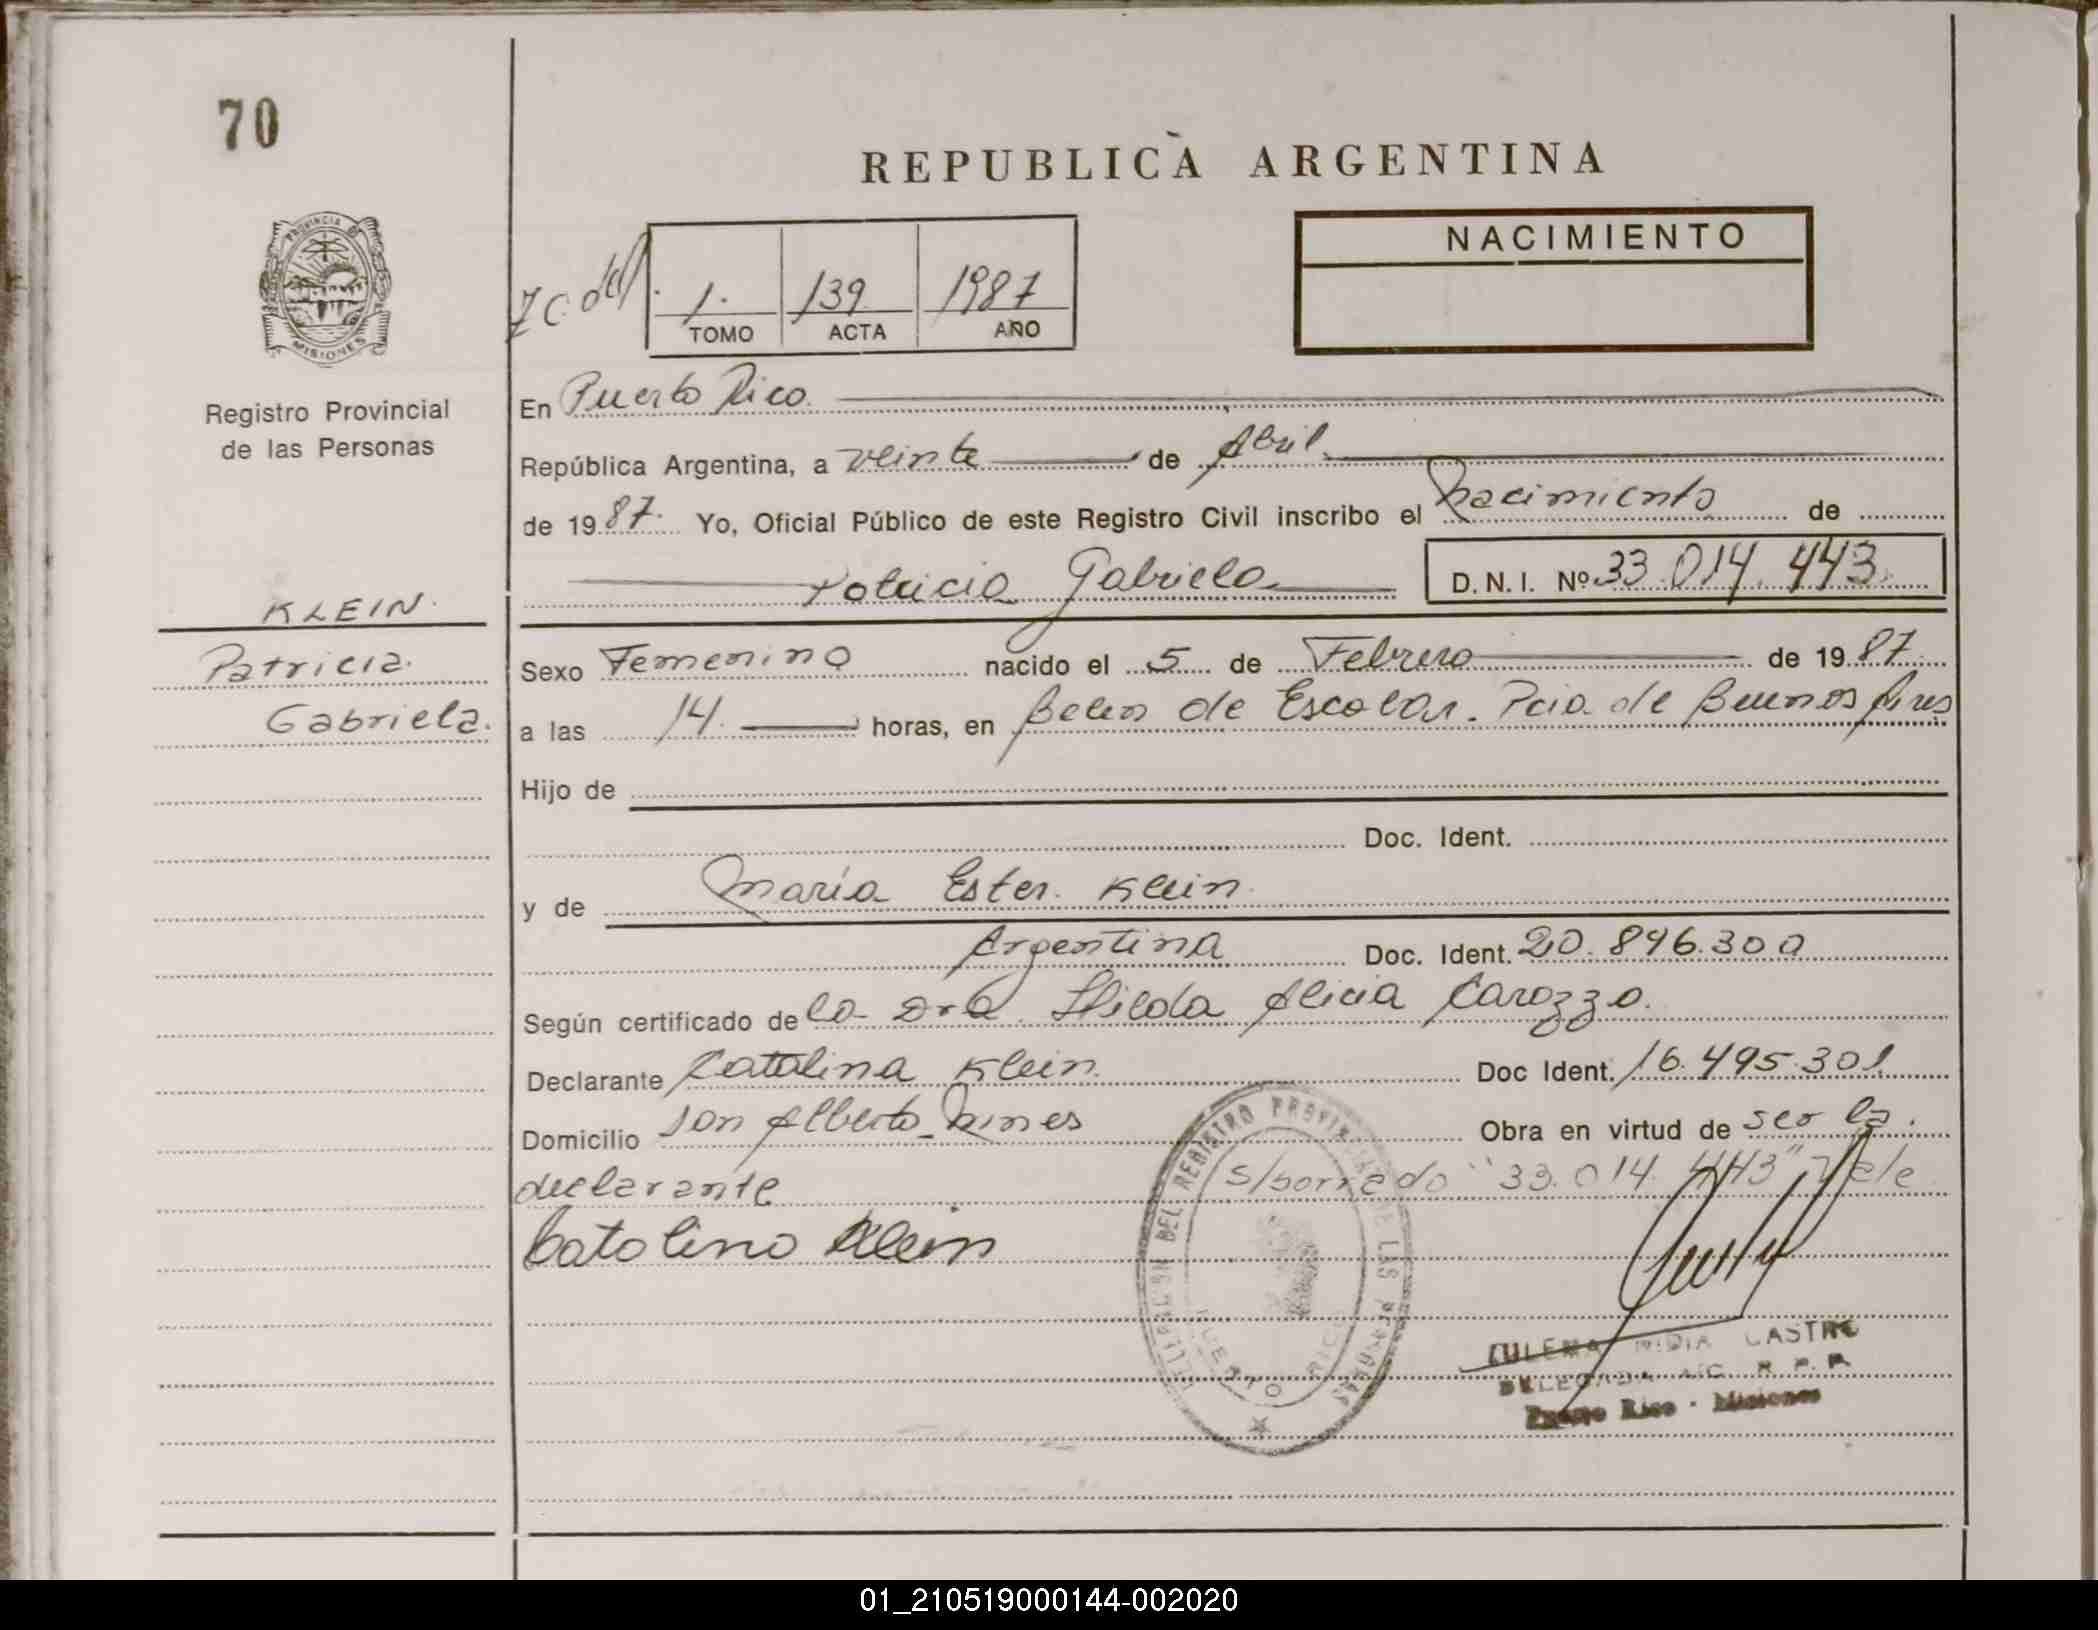 70
REPUBLICA ARGENTINA
PROVINCIA DE
MISIONES
NACIMIENTO
1. 139 1987
TOMO ACTA AÑO
Registro Provincial
de las Personas
KLEIN
Patricia
Gabriela.
En Puerto Rico
República Argentina, a veinte de Abril
de 1987. Yo, Oficial Público de este Registro Civil inscribo el nacimiento de
Patricia Gabriela D.N.I. Nº 33.014.443
Sexo Femenino nacido el 5 de Febrero de 1987
a las 14. horas, en Belen de Escobar. Pcia de Buenos Aires
Hijo de
Doc. Ident.
y de María Ester Klein
Argentina Doc. Ident. 20.896.300
Según certificado de la Dra Hilda Alicia Carozzo.
Declarante Catalina Klein Doc Ident. 16.495.301
Domicilio Jon Alberto Nines Obra en virtud de ser la
declarante s/borrado "33.014.443" Vale
Catalina Klein
DELEGACION DEL REGISTRO PROVINCIAL DE LAS PERSONAS
PUERTO RICO
ZULEMA NIDIA CASTRO
DELEGADA A/C R. P. P.
Puerto Rico - Misiones
01_210519000144-002020